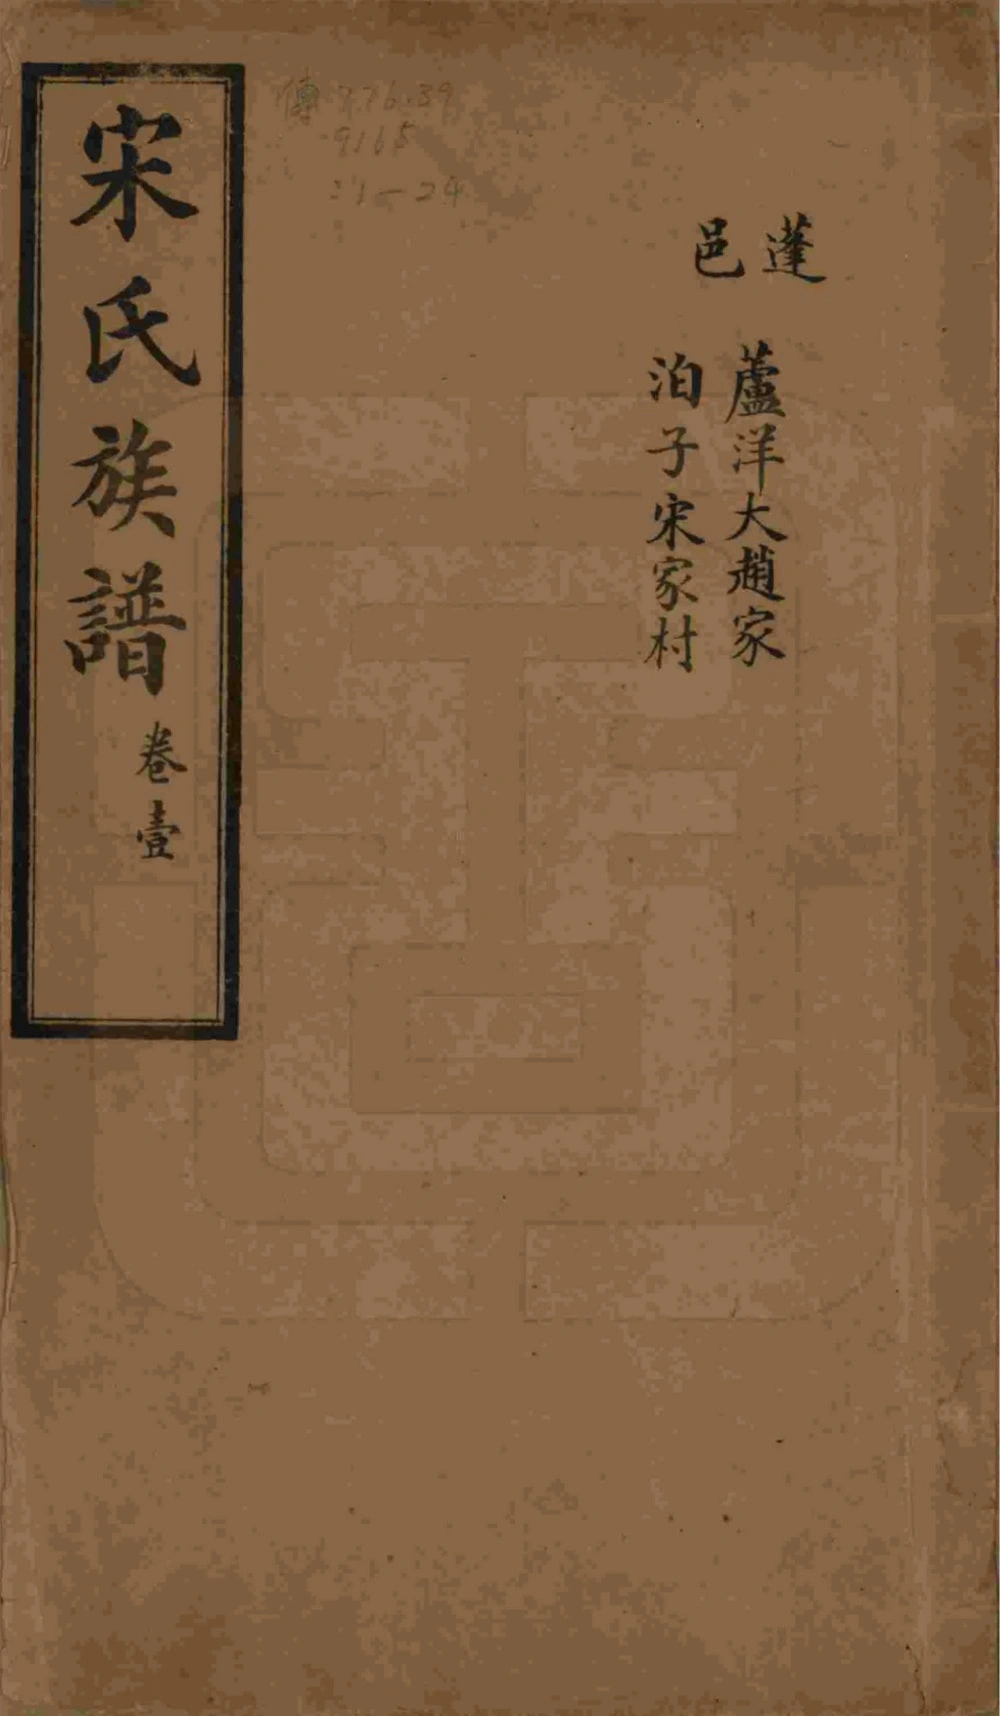 蓬邑
蘆洋大趙家
泊子宋家村
宋氏族譜 卷壹
傳 776.39
9165
:1-24